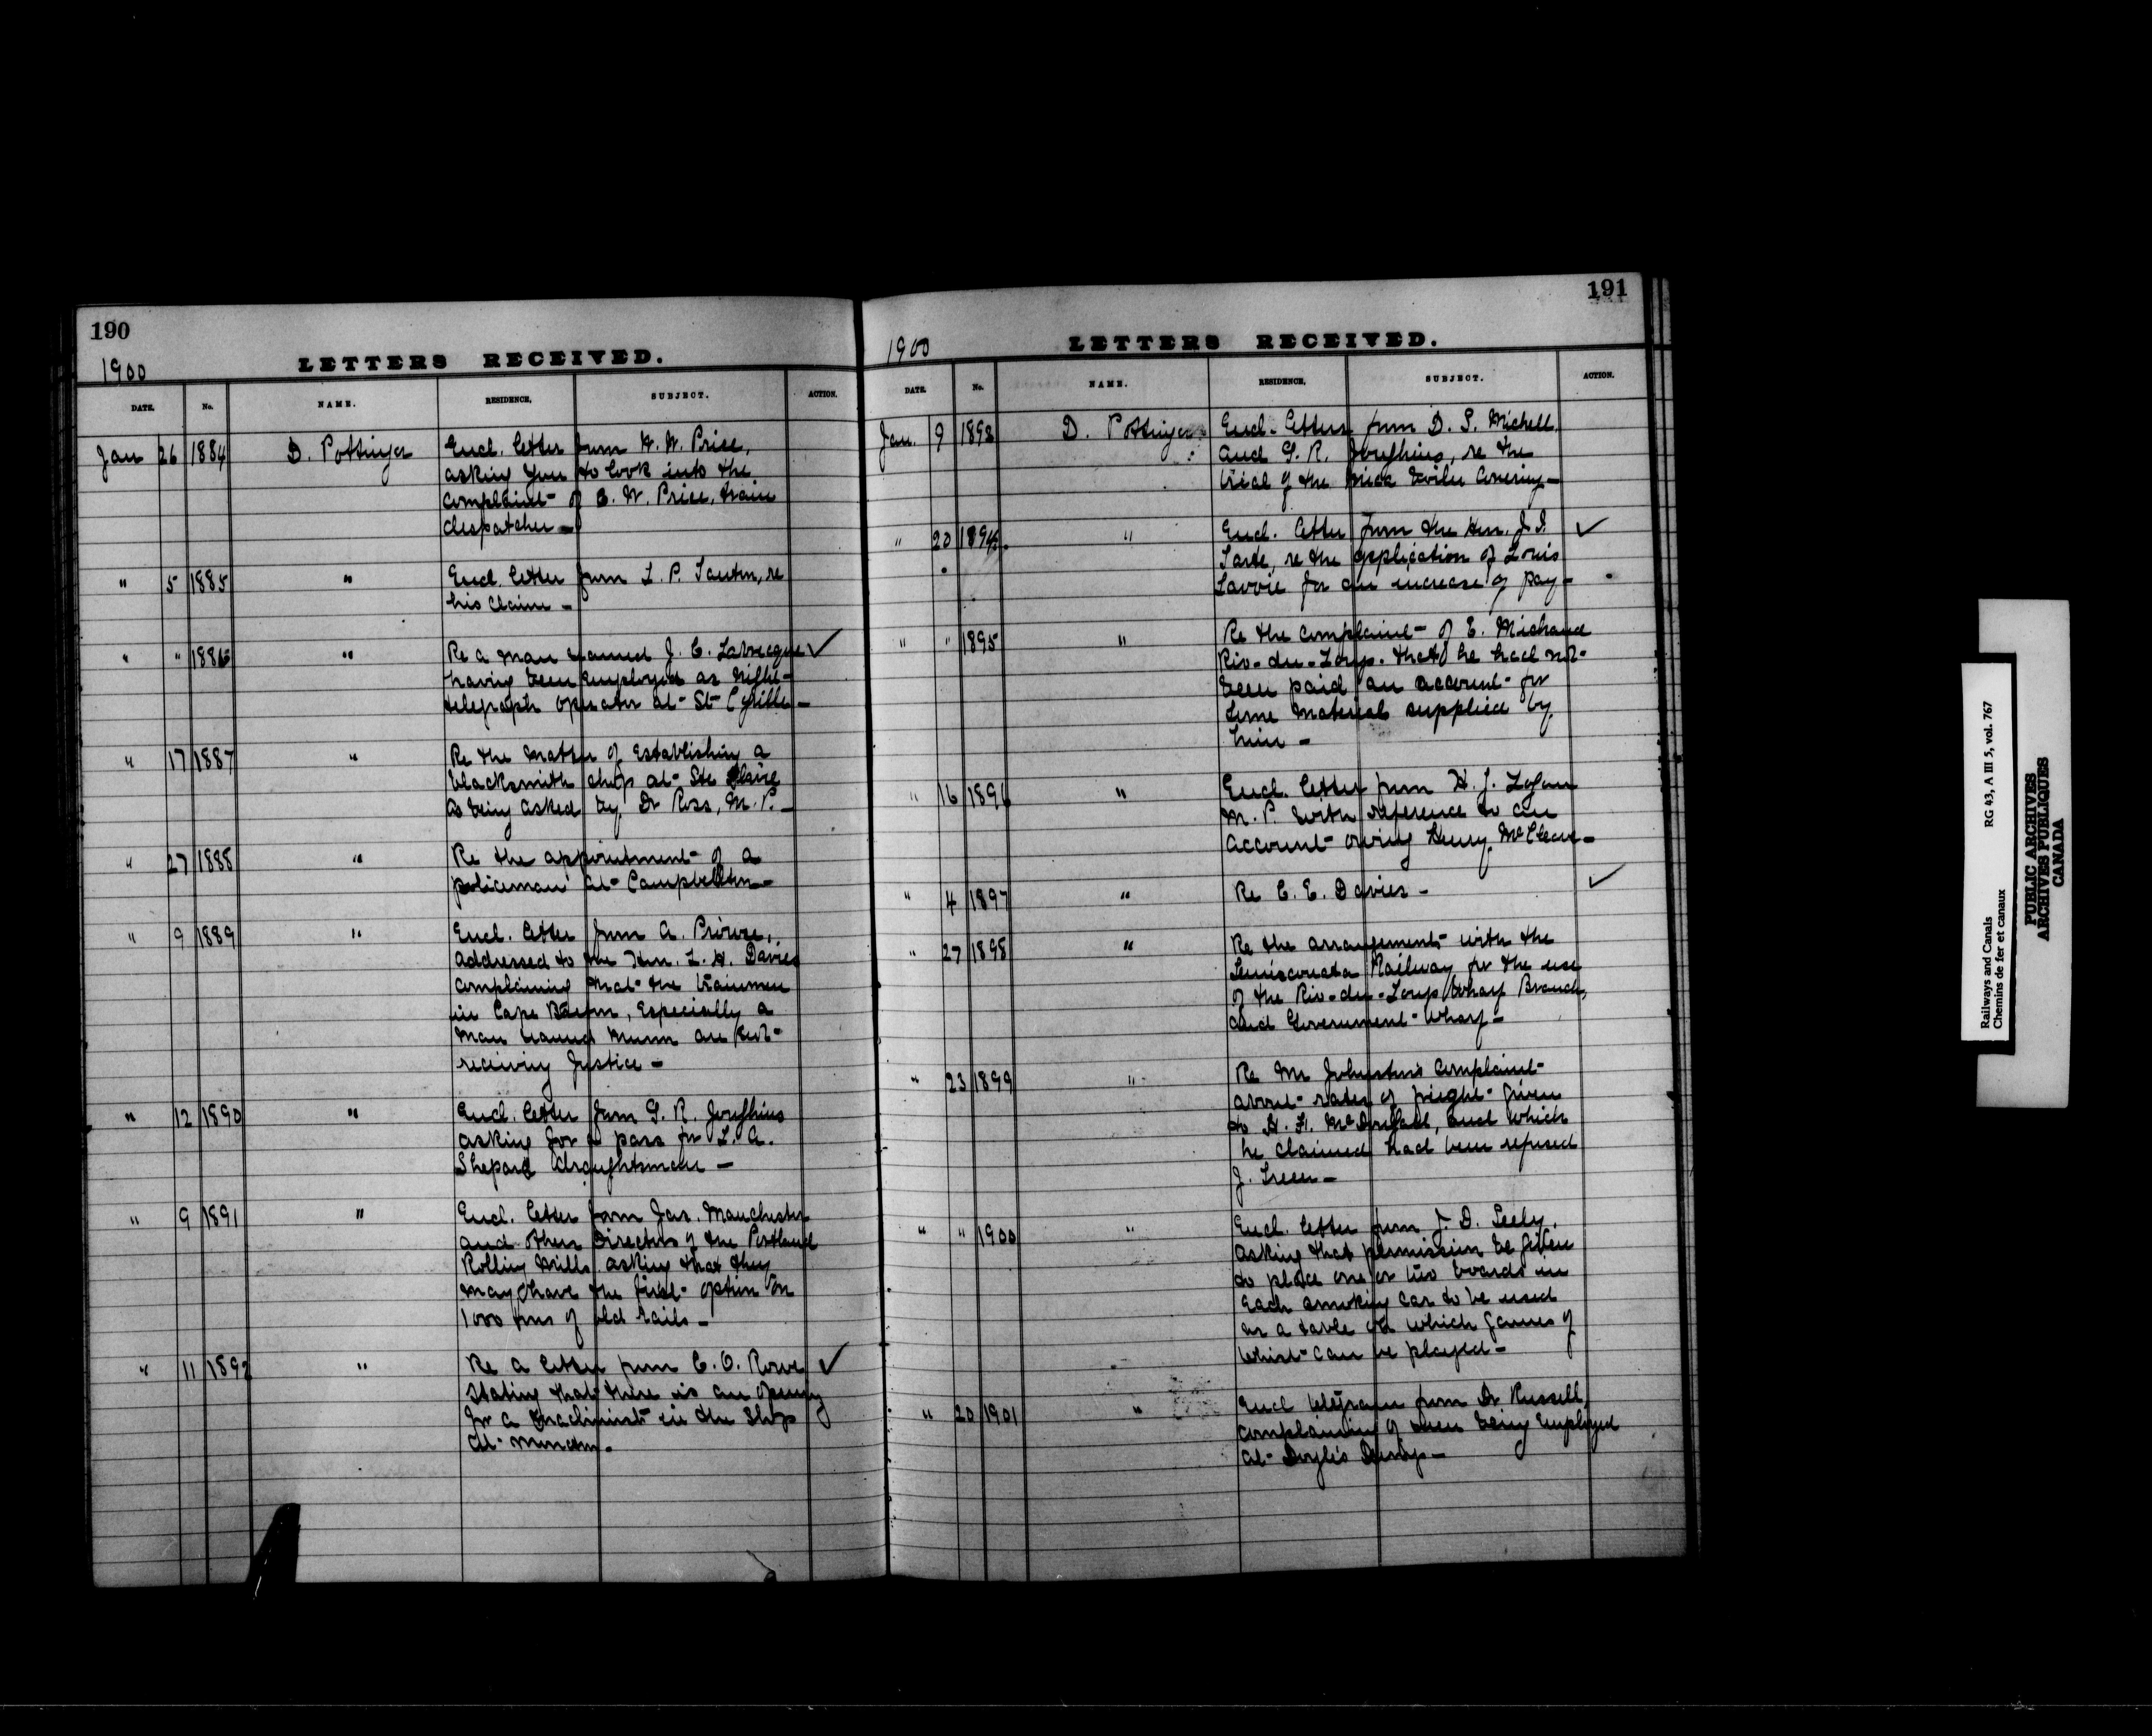 190
1900
LETTERS RECEIVED.
DATE. No. NAME. RESIDENCE, SUBJECT. ACTION.
Jan 26 1884 D. Pottinger Encl. letter from W. W. Price,
asking you to look into the
complaint of E. W. Price, train
despatcher -
" 5 1885 " Encl. letter from L. P. re
his claim -
" " 1886 " Re a man named J. E. Labrecque ✓
having been employed as night
telegraph operator at St Cyrille -
" 17 1887 " Re the matter of establishing a
blacksmith shop at Ste Claire
as being asked by Dr Ross, M.P. -
" 27 1888 " Re the appointment of a
policeman at Campbellton -
" 9 1889 " Encl. letter from A. Prowse,
addressed to the Hon. L. H. Davies
complaining that the trainmen
in Cape Breton, especially a
man named Munn are not
receiving justice -
" 12 1890 " Encl. letter from G. R. Joughins
asking for a pass for L. A.
Shepard draughtsman -
" 9 1891 " Encl. letter from Jas. Manchester
and others Directors of the Portland
Rolling Mills asking that they
may have the first option on
1000 tons of old rails -
" 11 1892 " Re a letter from C. O. Rowe ✓
stating that there is an opening
for a machinist in the shops
at Moncton.
191
1900
LETTERS RECEIVED.
DATE. No. NAME. RESIDENCE, SUBJECT. ACTION.
Jan. 9 1893 D. Pottinger Encl. letters from D. S. Michell
and G. R. Joughins, re the
trial of the mica boiler covering -
" 20 1894 " Encl. letter from the Hon. J. I. ✓
Tarte, re the application of Louis
Lavoie for an increase of pay -
" " 1895 " Re the complaint of E. Michaud
Riv-du-Loup. that he had not
been paid an account for
some material supplied by
him -
" 16 1896 " Encl. letter from H. J. Logan
M.P. with reference to an
account owing Henry McCleave -
" 4 1897 " Re C. E. Davies - ✓
" 27 1898 " Re the arrangements with the
Temiscouata Railway for the use
of the Riv-du-Loup Wharf Branch,
and Government Wharf -
" 23 1899 " Re Mr Johnston's complaint
about rates of freight given
to H. F. McDougall, and which
he claimed had been refused
J. Green -
" " 1900 " Encl. letter from J. D. Seely.
asking that permission be given
to place one or two boards in
each smoking car to be used
as a table on which games of
whist can be played -
" 20 1901 " Encl telegram from Dr Russell,
complaining of men being employed
at Doyle's
Railways and Canals RG 43, A III 5, vol. 767
Chemins de fer et canaux
PUBLIC ARCHIVES
ARCHIVES PUBLIQUES
CANADA